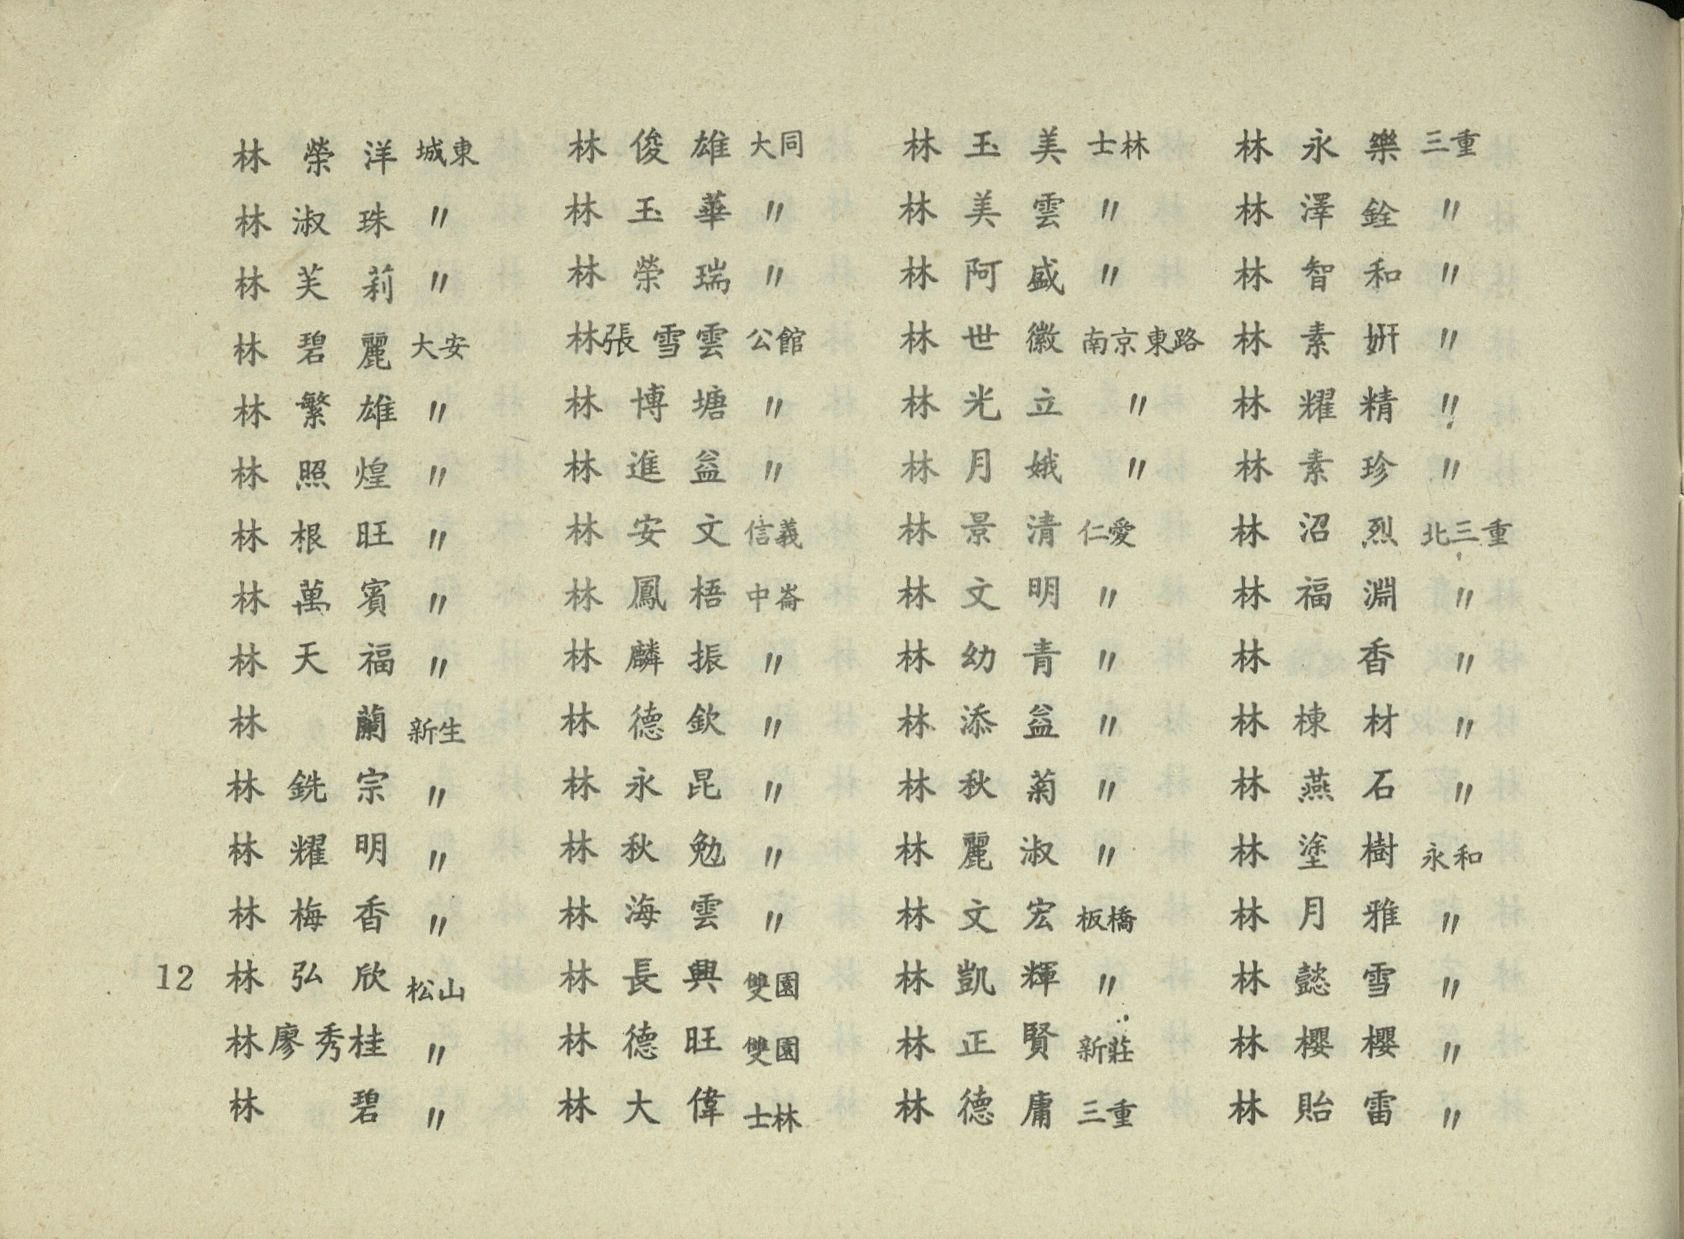 林榮洋 城東
林淑珠 〃
林芙莉 〃
林碧麗 大安
林繁雄 〃
林照煌 〃
林根旺 〃
林萬賓 〃
林天福 〃
林蘭 新生
林銑宗 〃
林耀明 〃
林梅香 〃
林弘欣 松山
林廖秀桂 〃
林碧 〃
林俊雄 大同
林玉華 〃
林榮瑞 〃
林張雪雲 公館
林博塘 〃
林進益 〃
林安文 信義
林鳳梧 中崙
林麟振 〃
林德欽 〃
林永昆 〃
林秋勉 〃
林海雲 〃
林長興 雙園
林德旺 雙園
林大偉 士林
林玉美 士林
林美雲 〃
林阿盛 〃
林世徽 南京東路
林光立 〃
林月娥 〃
林景清 仁愛
林文明 〃
林幼青 〃
林添益 〃
林秋菊 〃
林麗淑 〃
林文宏 板橋
林凱輝 〃
林正賢 新莊
林德庸 三重
林永樂 三重
林澤銓 〃
林智和 〃
林素姸 〃
林耀精 〃
林素珍 〃
林沼烈 北三重
林福淵 〃
林香 〃
林棟材 〃
林燕石 〃
林塗樹 永和
林月雅 〃
林懿雪 〃
林櫻櫻 〃
林貽雷 〃
12